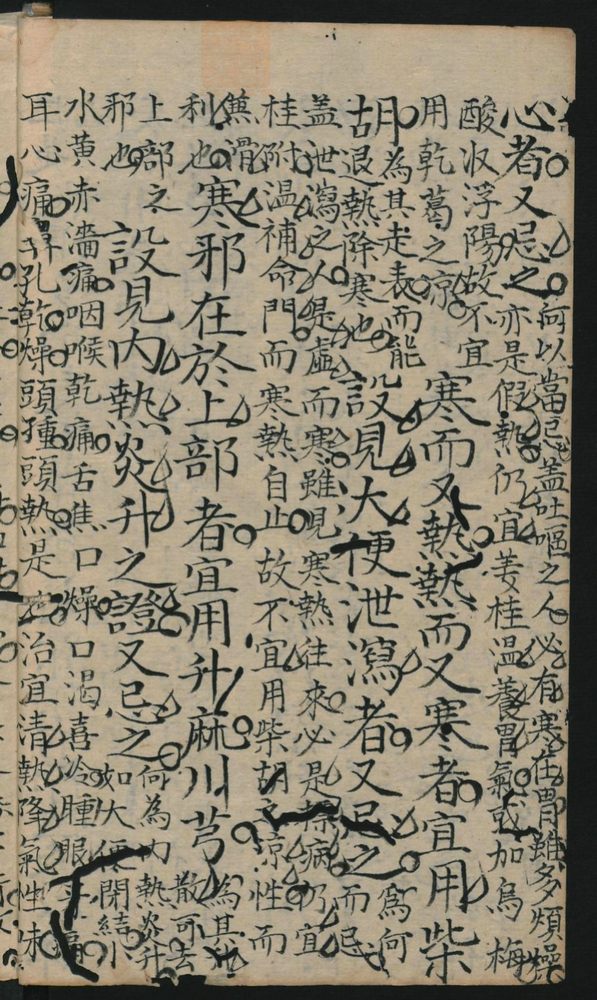 心者又忌之
何以當忌蓋吐嘔之人必有寒在胃雖多煩燥
亦是假熱仍宜姜桂温養胃氣或加烏梅
酸収浮陽故不宜
用乾葛之凉
寒而又熱熱而又寒者宜用柴
胡
為其走表而能
退熱除寒也
設見大便泄瀉者又忌之
為何
而忌
盖泄瀉之人是虛而寒雖見寒熱往來必是標病仍宜
桂附温補命門而寒熱自止故不宜用柴胡之凉性而
滑
利也
寒邪在於上部者宜用升麻川芎
為其升
散可去
上部之
邪也
設見内熱炎升之證又忌之
何為内熱炎升
如大便閉結小
水黃赤濇痛咽喉乾痛舌焦口燥口渴喜冷腫眼牙痛
耳心痛鼻孔乾燥頭腫頭熱是治宜清熱降氣性味